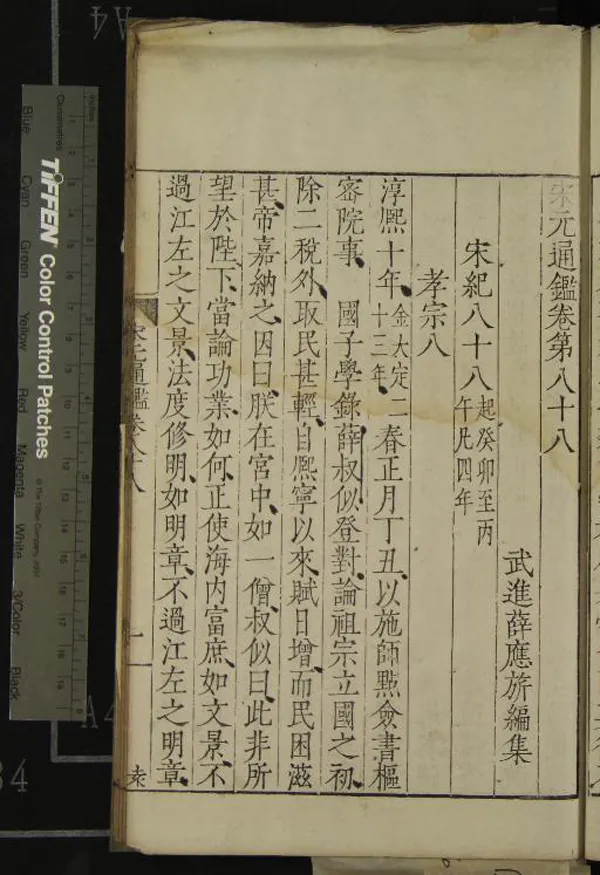 宋元通鑑卷第八十八
武進薛應旂編集
宋紀八十八起癸卯至丙午凡四年
孝宗八
淳熙十年、金大定二十三年、春正月丁丑、以施師點僉書樞
密院事、國子學錄薛叔似登對、論祖宗立國之初、
除二稅外、取民甚輕、自熙寧以來、賦日增、而民困滋
甚、帝嘉納之、因曰、朕在宮中、如一僧、叔似曰、此非所
望於陛下、當論功業如何、正使海內富庶、如文景、不
過江左之文景、法度修明、如明章、不過江左之明章、
宋元通鑑卷八十八
一
TIFFEN Color Control Patches
© The Tiffen Company, 2007
Centimetres
Inches
Blue
Cyan
Green
Yellow
Red
Magenta
White
3/Color
Black
A4